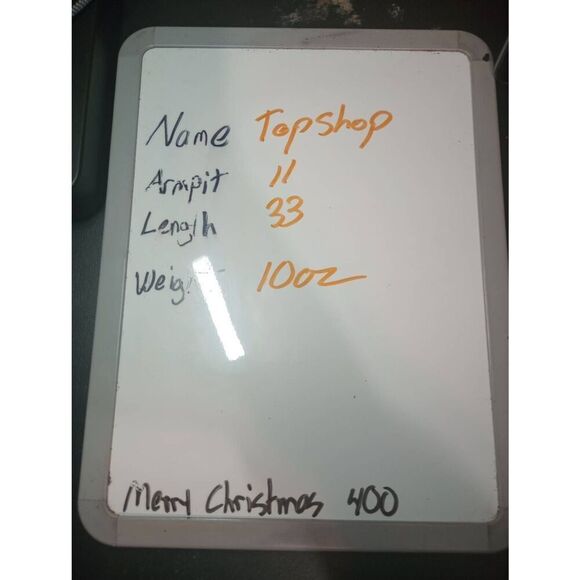 Name TopShop
Armpit 11
Length 33
Weight 10oz
Merry Christmas 400